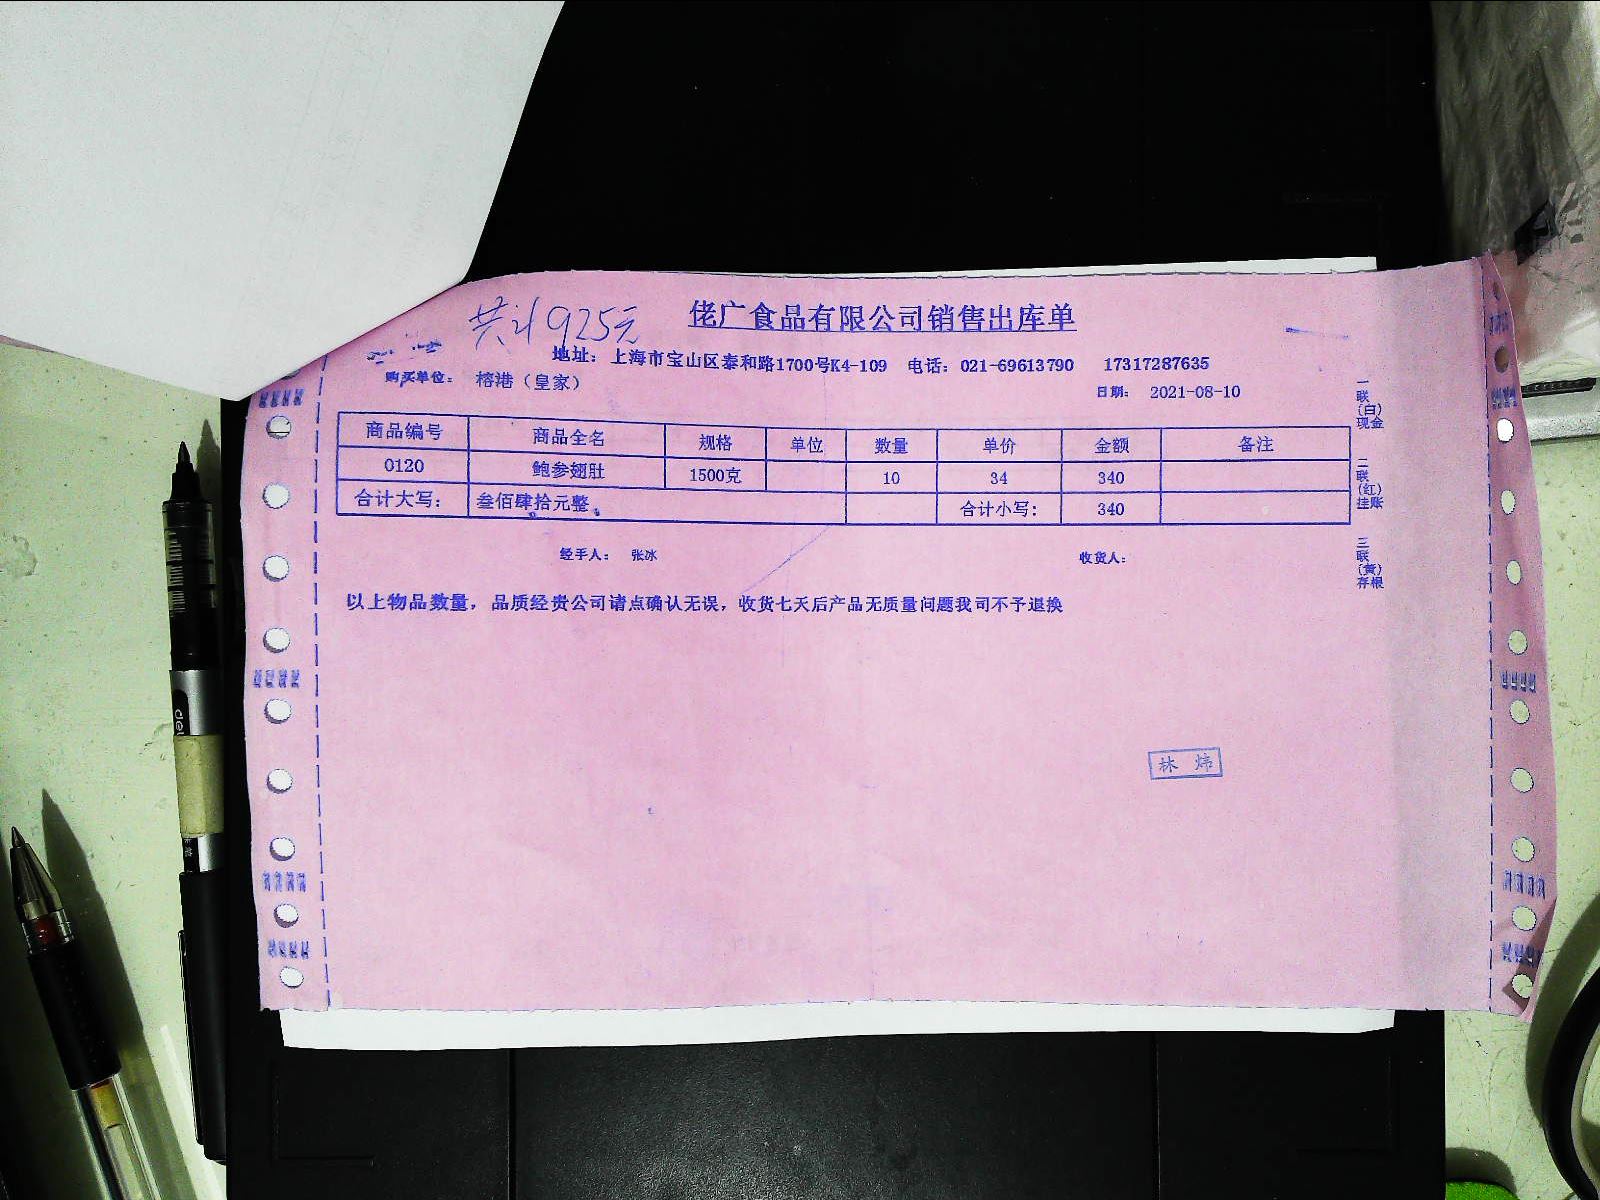 共计925元
佬广食品有限公司销售出库单
地址：上海市宝山区泰和路1700号K4-109 电话：021-69613790 17317287635
购买单位： 榕港（皇家）
日期： 2021-08-10
商品编号 商品全名 规格 单位 数量 单价 金额 备注
0120 鲍参翅肚 1500克 10 34 340
合计大写： 叁佰肆拾元整 合计小写： 340
经手人： 张冰 收货人：
以上物品数量，品质经贵公司请点确认无误，收货七天后产品无质量问题我司不予退换
一联(白)现金
二联(红)挂账
三联(黄)存根
林 炜